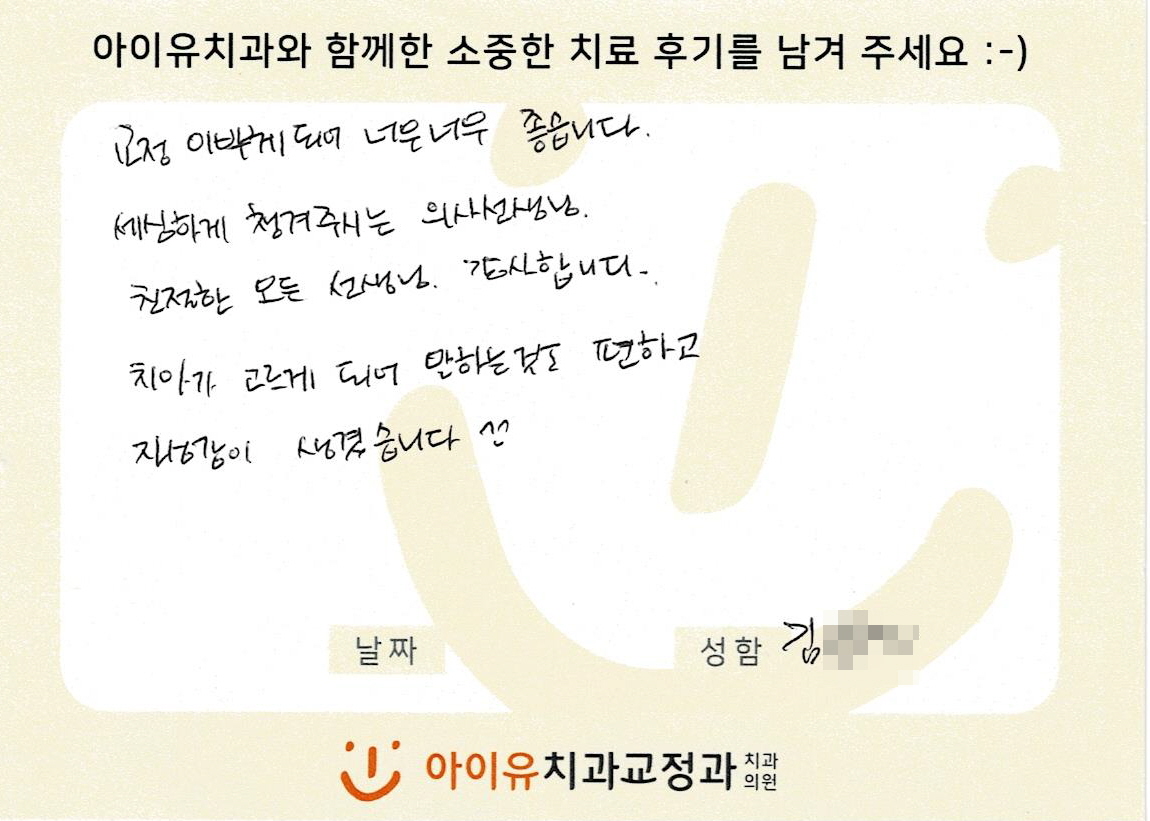 아이유치과와 함께한 소중한 치료 후기를 남겨 주세요 :-)
교정 이쁘게 되어 너무너무 좋습니다.
세심하게 챙겨주시는 의사선생님.
친절한 모든 선생님. 감사합니다.
치아가 고르게 되어 말하는것도 편하고
자신감이 생겼습니다 ^^
날짜
성함 김
아이유치과교정과 치과의원